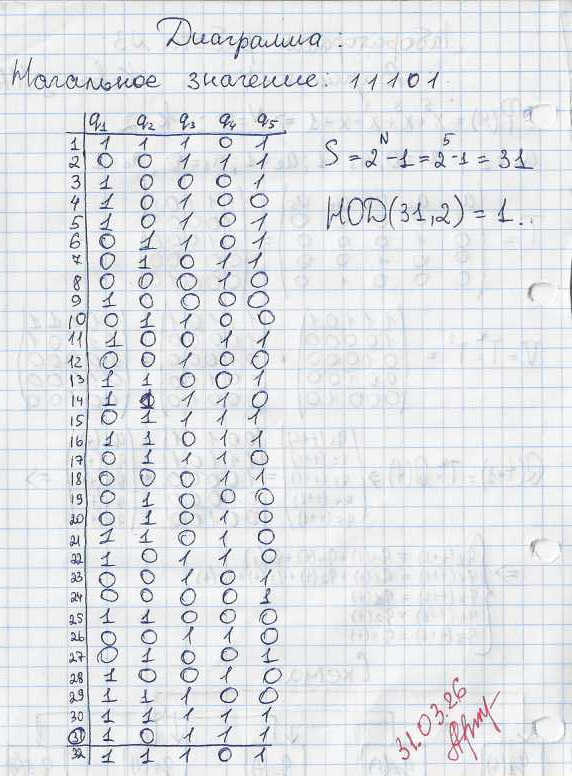 Диаграмма:
Начальное значение: 11101.
q1 q2 q3 q4 q5
1 1 1 1 0 1
2 0 0 1 1 1
3 1 0 0 0 1
4 1 0 1 0 0
5 1 0 1 0 1
6 0 1 1 0 1
7 0 1 0 1 1
8 0 0 0 1 0
9 1 0 0 0 0
10 0 1 1 0 0
11 1 0 0 1 1
12 0 0 1 0 0
13 1 1 0 0 1
14 1 0 1 1 0
15 0 1 1 1 1
16 1 1 0 1 1
17 0 1 1 1 0
18 0 0 0 1 1
19 0 1 0 0 0
20 0 1 0 1 0
21 1 1 0 1 0
22 1 0 1 1 0
23 0 0 1 0 1
24 0 0 0 0 1
25 1 1 0 0 0
26 0 0 1 1 0
27 0 1 0 0 1
28 1 0 0 1 0
29 1 1 1 0 0
30 1 1 1 1 1
31 1 0 1 1 1
32 1 1 1 0 1
S = 2^N - 1 = 2^5 - 1 = 31
НОД(31,2) = 1.
31.03.26